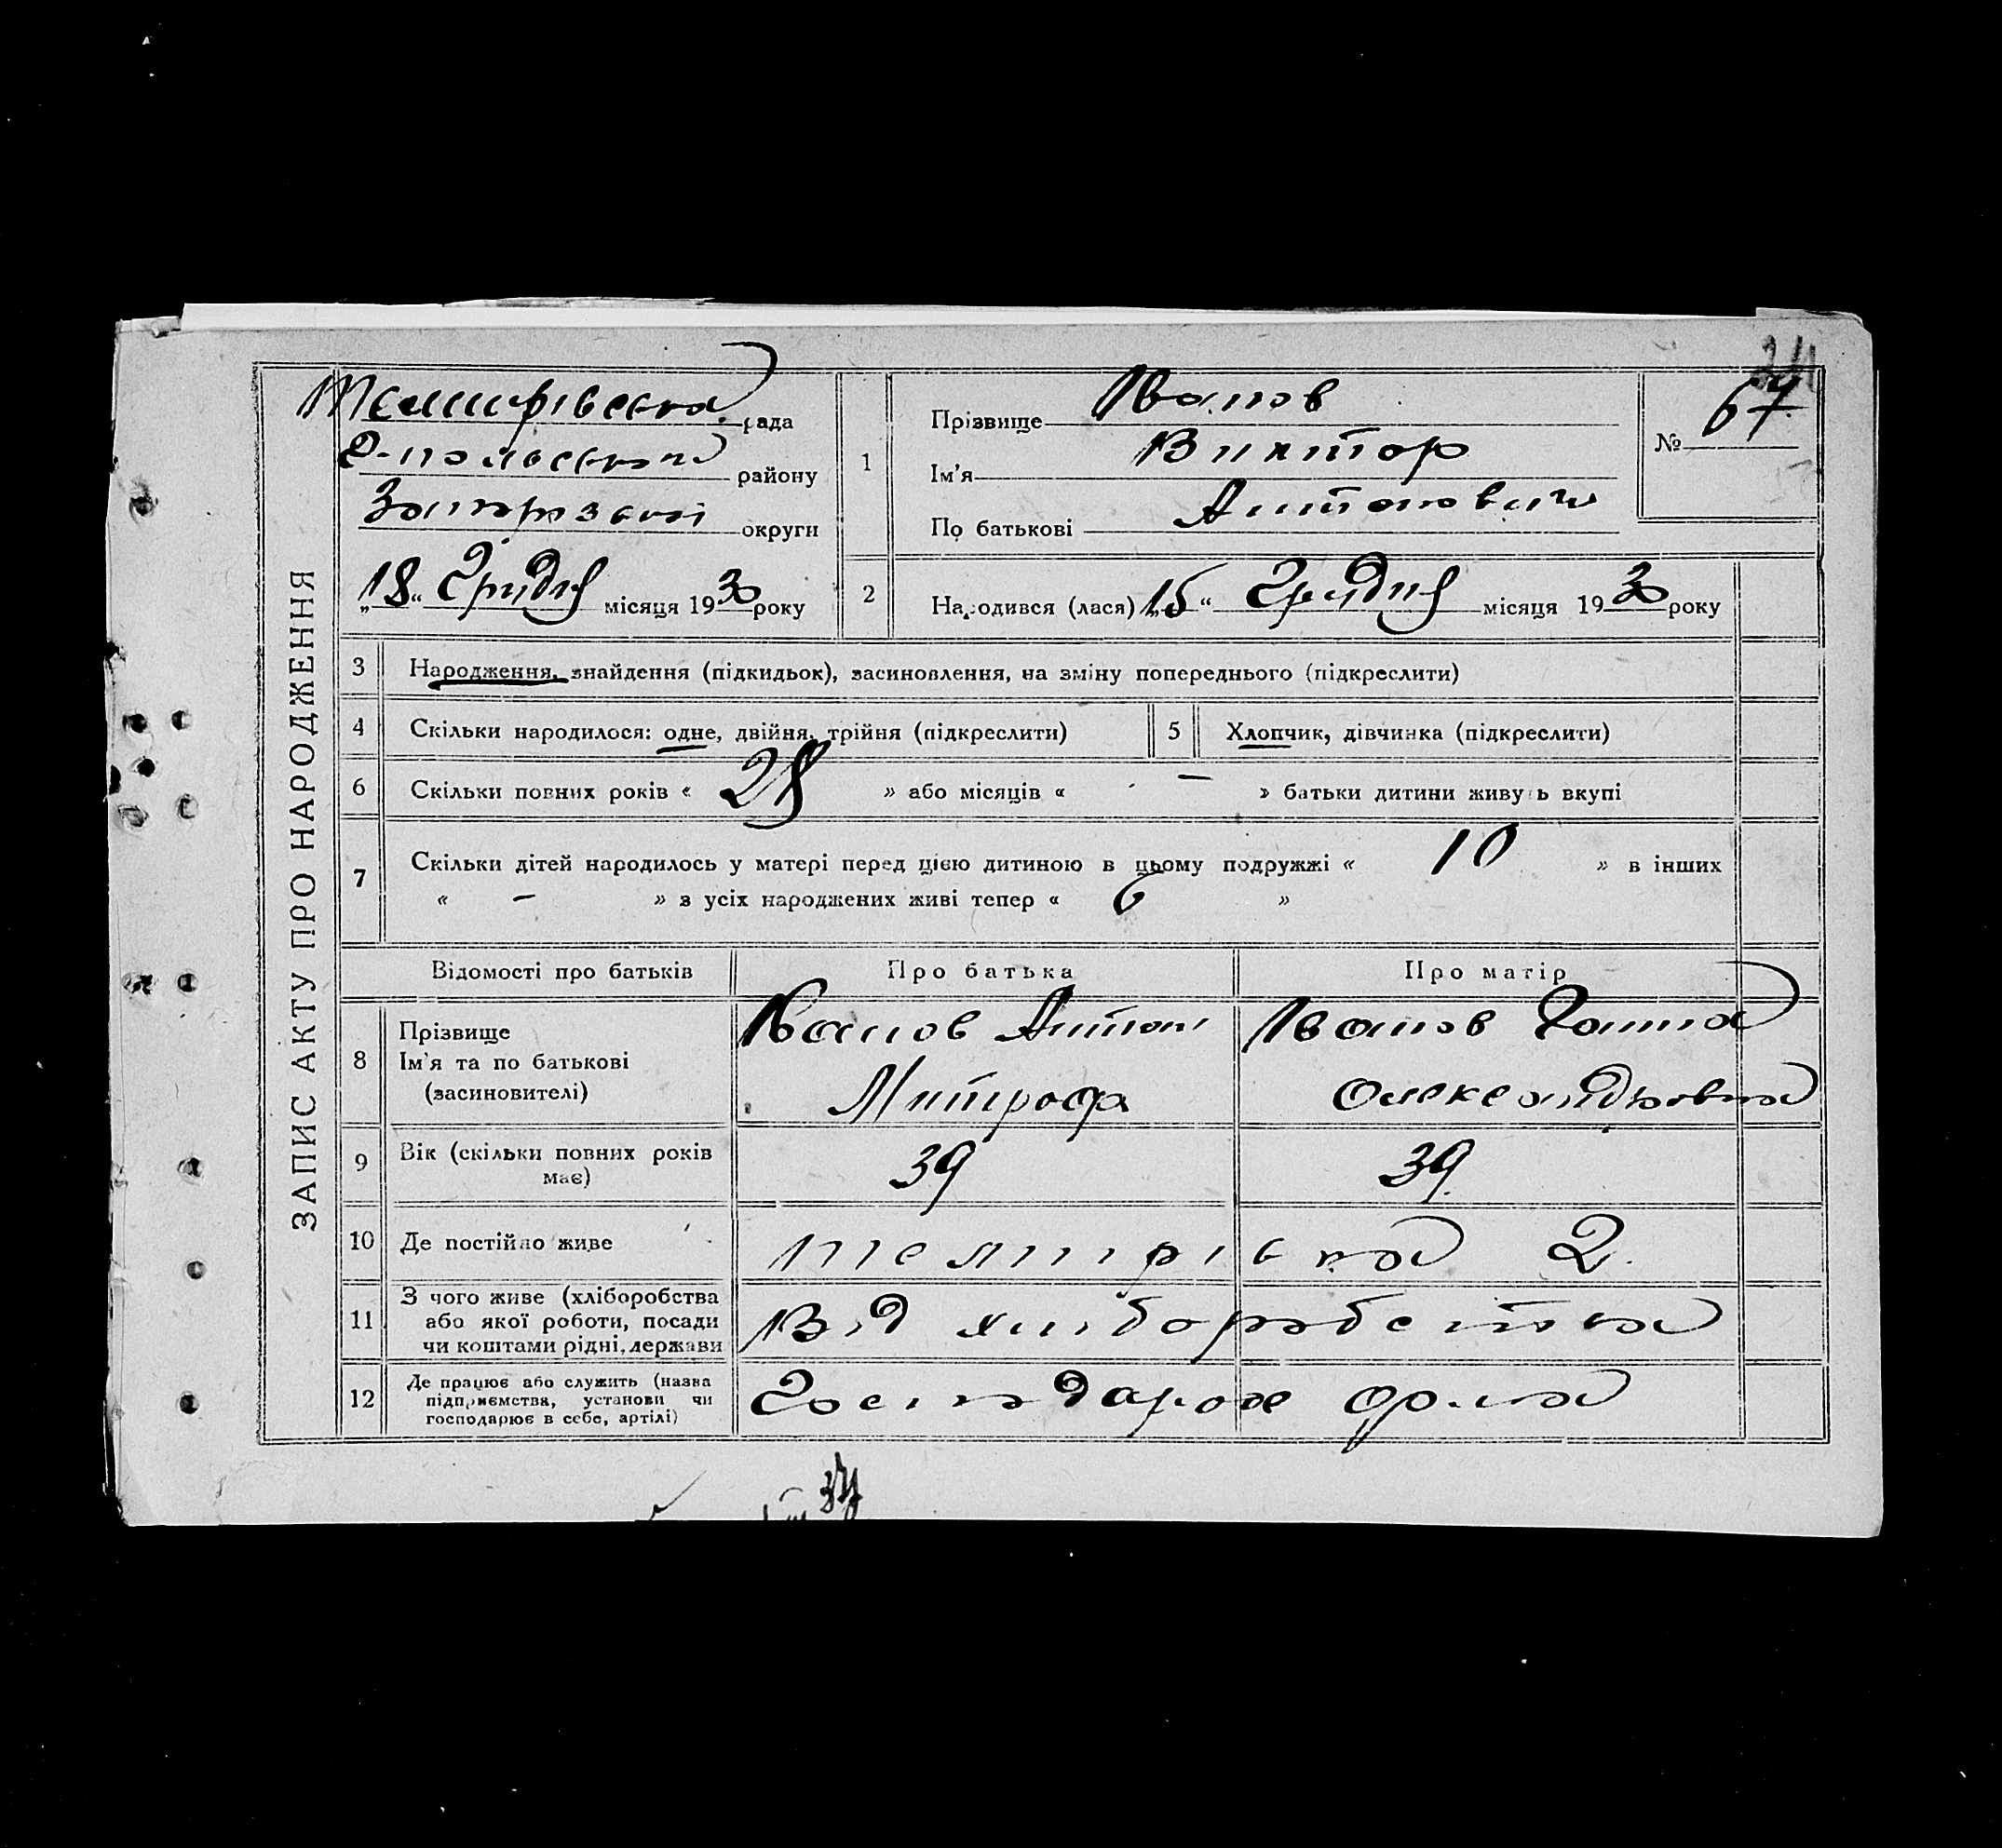 ЗАПИС АКТУ ПРО НАРОДЖЕННЯ
Темирівська рада
району
округи
„18“ Грудня місяця 1930 року
1
Прізвище Іванов
Ім'я Виктор
По батькові Антонович
№ 67
2
Народився (лася) „15“ Грудня місяця 1930 року
3 Народження, знайдення (підкидьок), засиновлення, на зміну попереднього (підкреслити)
4 Скільки народилося: одне, двійня, трійня (підкреслити)
5 Хлопчик, дівчинка (підкреслити)
6 Скільки повних років « 28 » або місяців « — » батьки дитини живуть вкупі
7 Скільки дітей народилось у матері перед цією дитиною в цьому подружжі « 10 » в інших
« – » з усіх народжених живі тепер « 6 »
Відомості про батьків Про батька Про матір
8 Прізвище
Ім'я та по батькові
(засиновителі)
Іванов Антон
Митроф
Іванов Ганна
Олександровна
9 Вік (скільки повних років
має)
39 39
10 Де постійно живе Темирівка 2.
11 З чого живе (хліборобства
або якої роботи, посади
чи коштами рідні, держави
Від хліборобства
12 Де працює або служить (назва
підприємства, установи чи
господарює в себе, артілі)
37